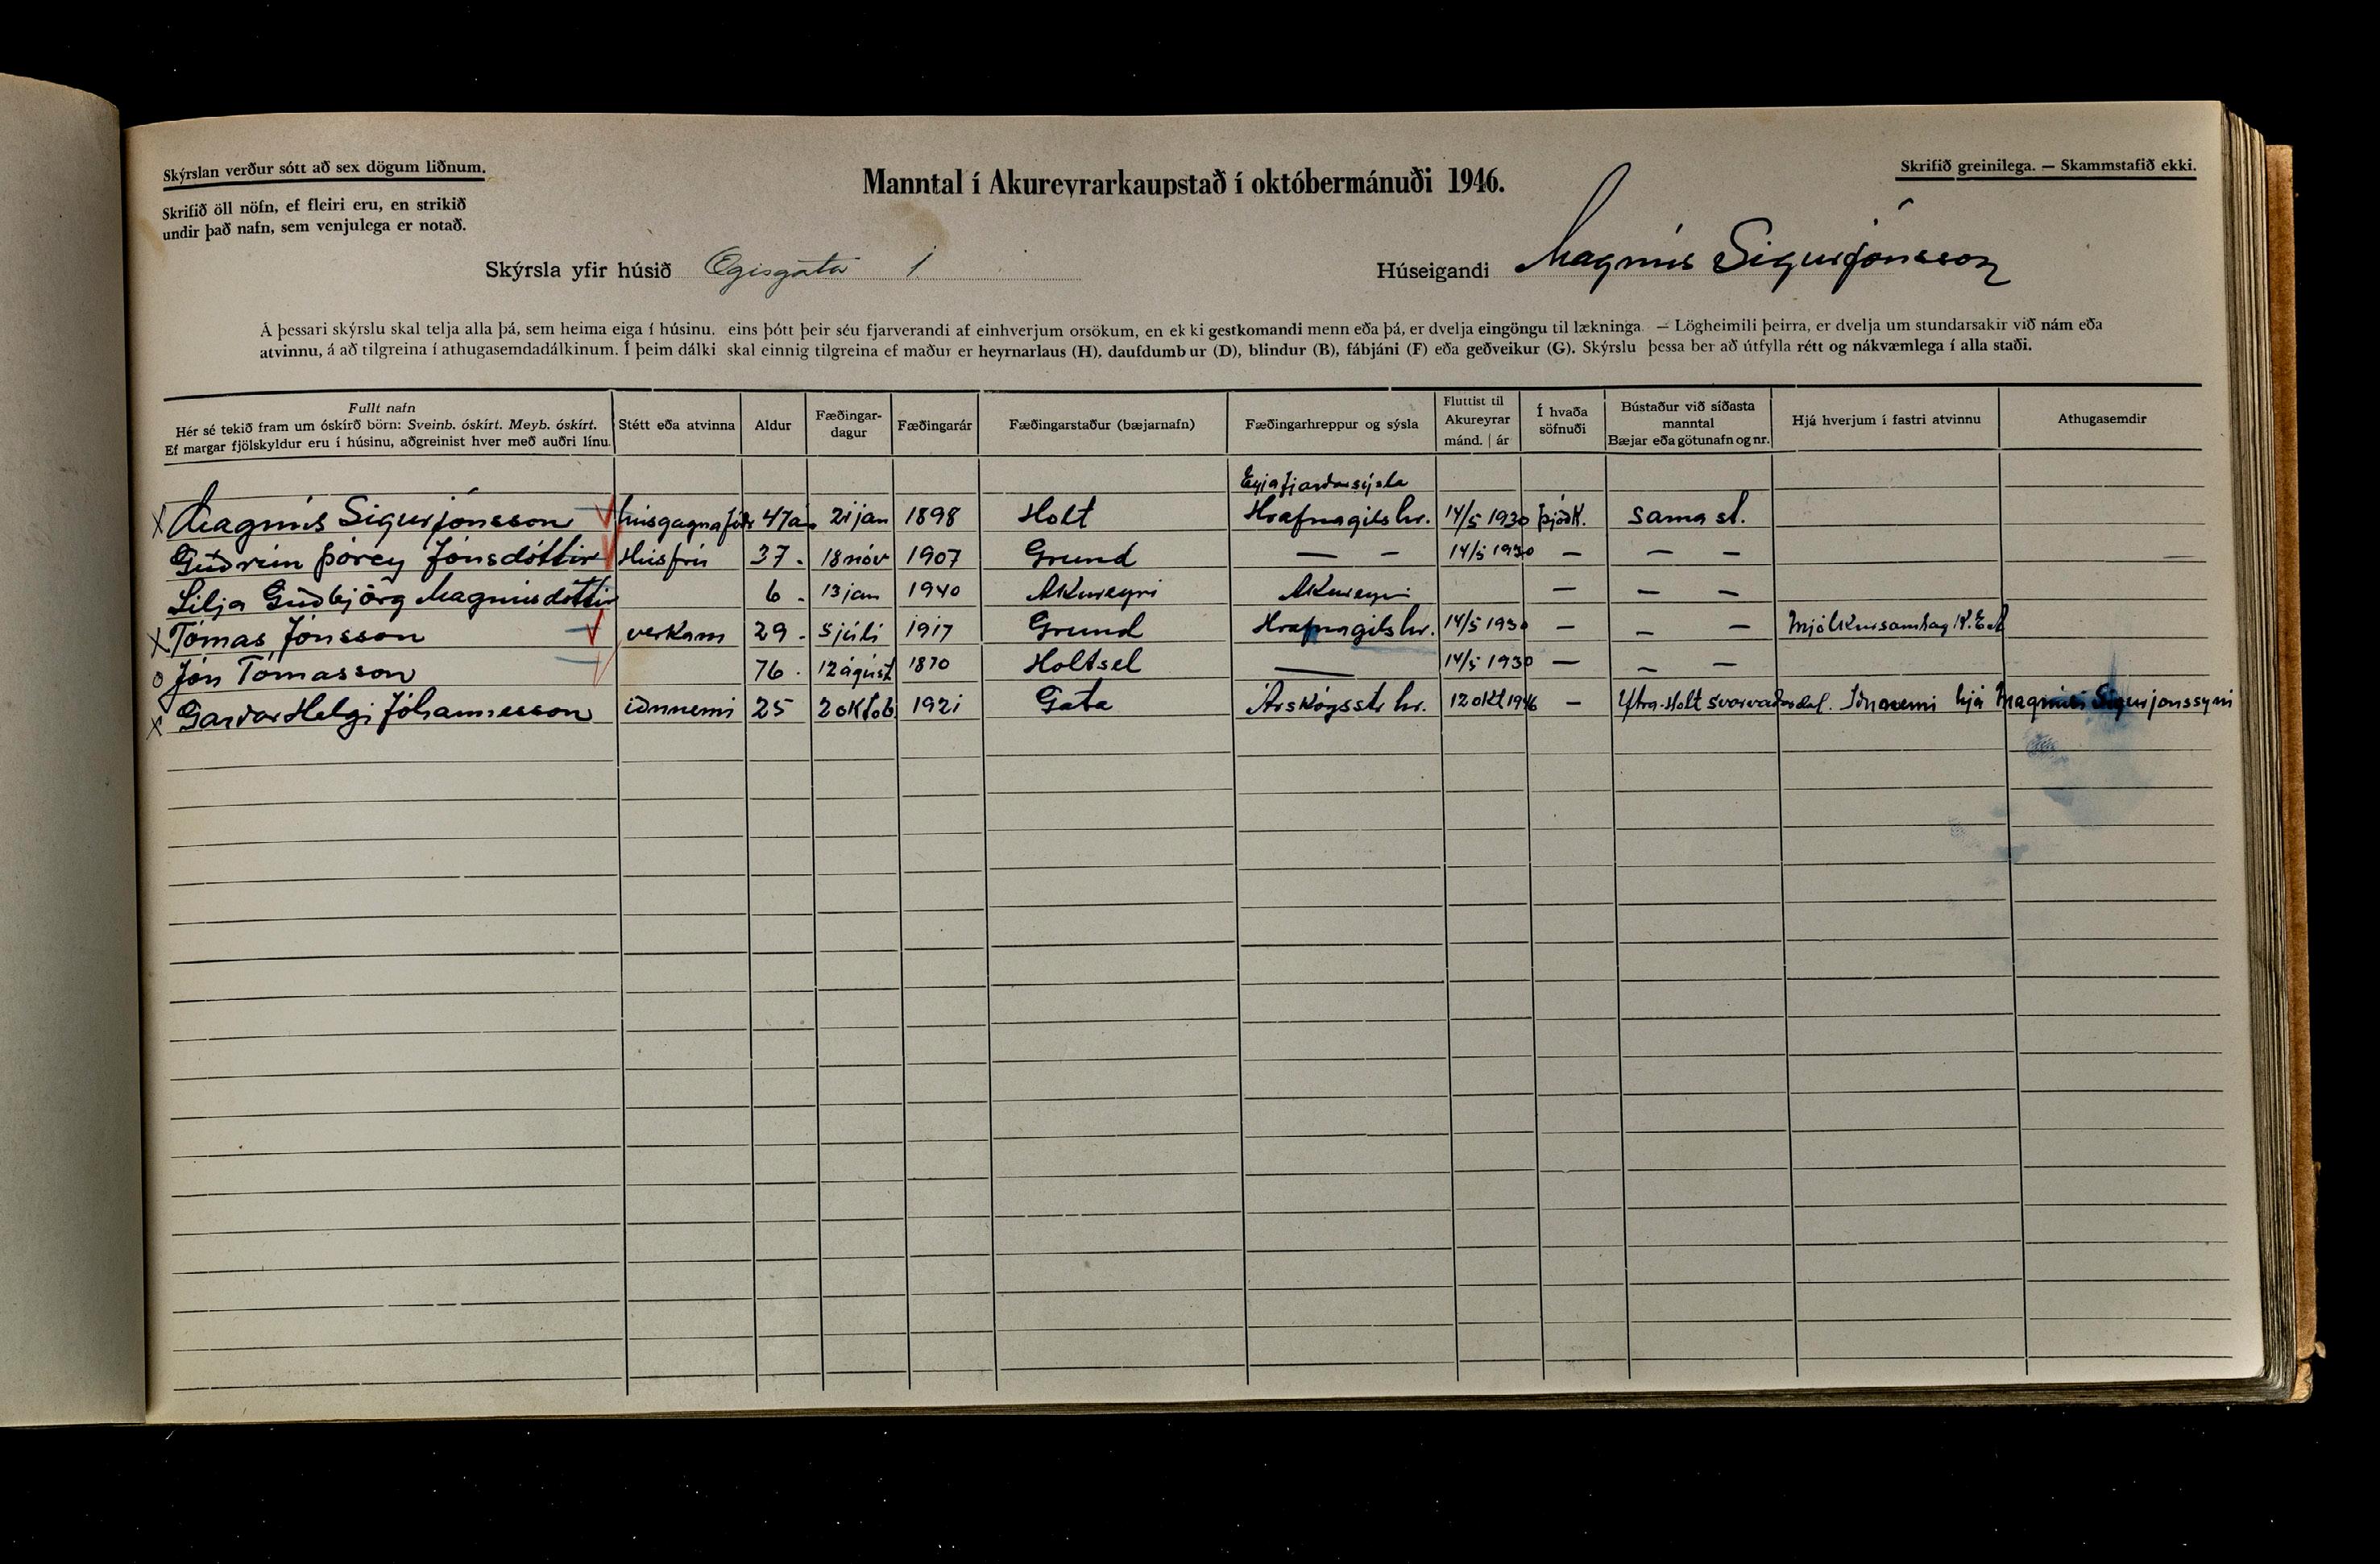 Skýrslan verður sótt að sex dögum liðnum.
Skrifið öll nöfn, ef fleiri eru, en strikið
undir það nafn, sem venjulega er notað.
Manntal í Akureyrarkaupstað í októbermánuði 1946.
Skrifið greinilega. — Skammstafið ekki.
Skýrsla yfir húsið Ægisgata 1
Húseigandi Magnús Sigurjónsson
Á þessari skýrslu skal telja alla þá, sem heima eiga í húsinu, eins þótt þeir séu fjarverandi af einhverjum orsökum, en ekki gestkomandi menn eða þá, er dvelja eingöngu til lækninga. — Lögheimili þeirra, er dvelja um stundarsakir við nám eða
atvinnu, á að tilgreina í athugasemdadálkinum. Í þeim dálki skal einnig tilgreina ef maður er heyrnarlaus (H), daufdumbur (D), blindur (B), fábjáni (F) eða geðveikur (G). Skýrslu þessa ber að útfylla rétt og nákvæmlega í alla staði.
Fullt nafn
Hér sé tekið fram um óskírð börn: Sveinb. óskírt. Meyb. óskírt.
Ef margar fjölskyldur eru í húsinu, aðgreinist hver með auðri línu.
Stétt eða atvinna
Aldur
Fæðingar-
dagur
Fæðingarár
Fæðingarstaður (bæjarnafn)
Fæðingarhreppur og sýsla
Fluttist til
Akureyrar
mánd. | ár
Í hvaða
söfnuði
Bústaður við síðasta
manntal
Bæjar eða götunafn og nr.
Hjá hverjum í fastri atvinnu
Athugasemdir
Eyjafjarðarsýsla
x Magnús Sigurjónsson 47 21 jan 1898 Holt Hrafnagilshr. 14/5 1930 þjóðk. sama st.
Guðrún Þórey Jónsdóttir Húsfrú 37 - 18 nóv 1907 Grund — - 14/5 1930 — — —
Lilja Guðbjörg Magnúsdóttir 6 - 13 jan 1940 Akureyri Akureyri — — —
x Tómas Jónsson verkam 29 - 5 júlí 1917 Grund Hrafnagilshr. 14/5 1930 — — — Mjólkursamlag K.E.A
o Jón Tómasson 76 - 12 ágúst 1870 Holtsel — 14/5 1930 — — —
x Garðar Helgi Jóhannesson iðnnemi 25 2 októb 1921 Gata Árskógsstr hr. 12 okt 1946 — Ytra-Holt Svarvaðardal. Iðnnemi hjá Magnúsi Sigurjónssyni